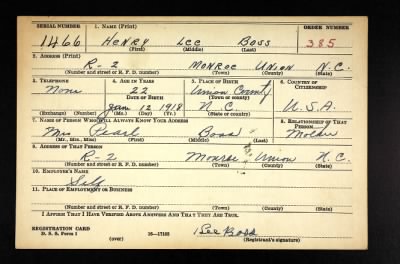 SERIAL NUMBER 1. NAME (Print) ORDER NUMBER
1466 HENRY LEE BOSS 385
(First) (Middle) (Last)
2. ADDRESS (Print)
R-2 MONROE UNION N.C.
(Number and street or R. F. D. number) (Town) (County) (State)
3. TELEPHONE 4. AGE IN YEARS 5. PLACE OF BIRTH 6. COUNTRY OF CITIZENSHIP
None 22 Union County
DATE OF BIRTH (Town or county)
Jan 12 1918 N.C. U.S.A.
(Exchange) (Number) (Mo.) (Day) (Yr.) (State or country)
7. NAME OF PERSON WHO WILL ALWAYS KNOW YOUR ADDRESS 8. RELATIONSHIP OF THAT PERSON
Mrs Pearl Boss Mother
(Mr., Mrs., Miss) (First) (Middle) (Last)
9. ADDRESS OF THAT PERSON
R-2 Monroe Union N.C.
(Number and street or R. F. D. number) (Town) (County) (State)
10. EMPLOYER'S NAME
Self
11. PLACE OF EMPLOYMENT OR BUSINESS
(Number and street or R. F. D. number) (Town) (County) (State)
I AFFIRM THAT I HAVE VERIFIED ABOVE ANSWERS AND THAT THEY ARE TRUE.
REGISTRATION CARD
D. S. S. Form 1 (over) 16—17105 Lee Boss
(Registrant's signature)